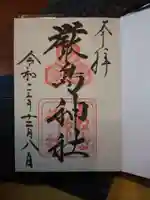 奉拝
嚴島神社
令和二年十二月八日